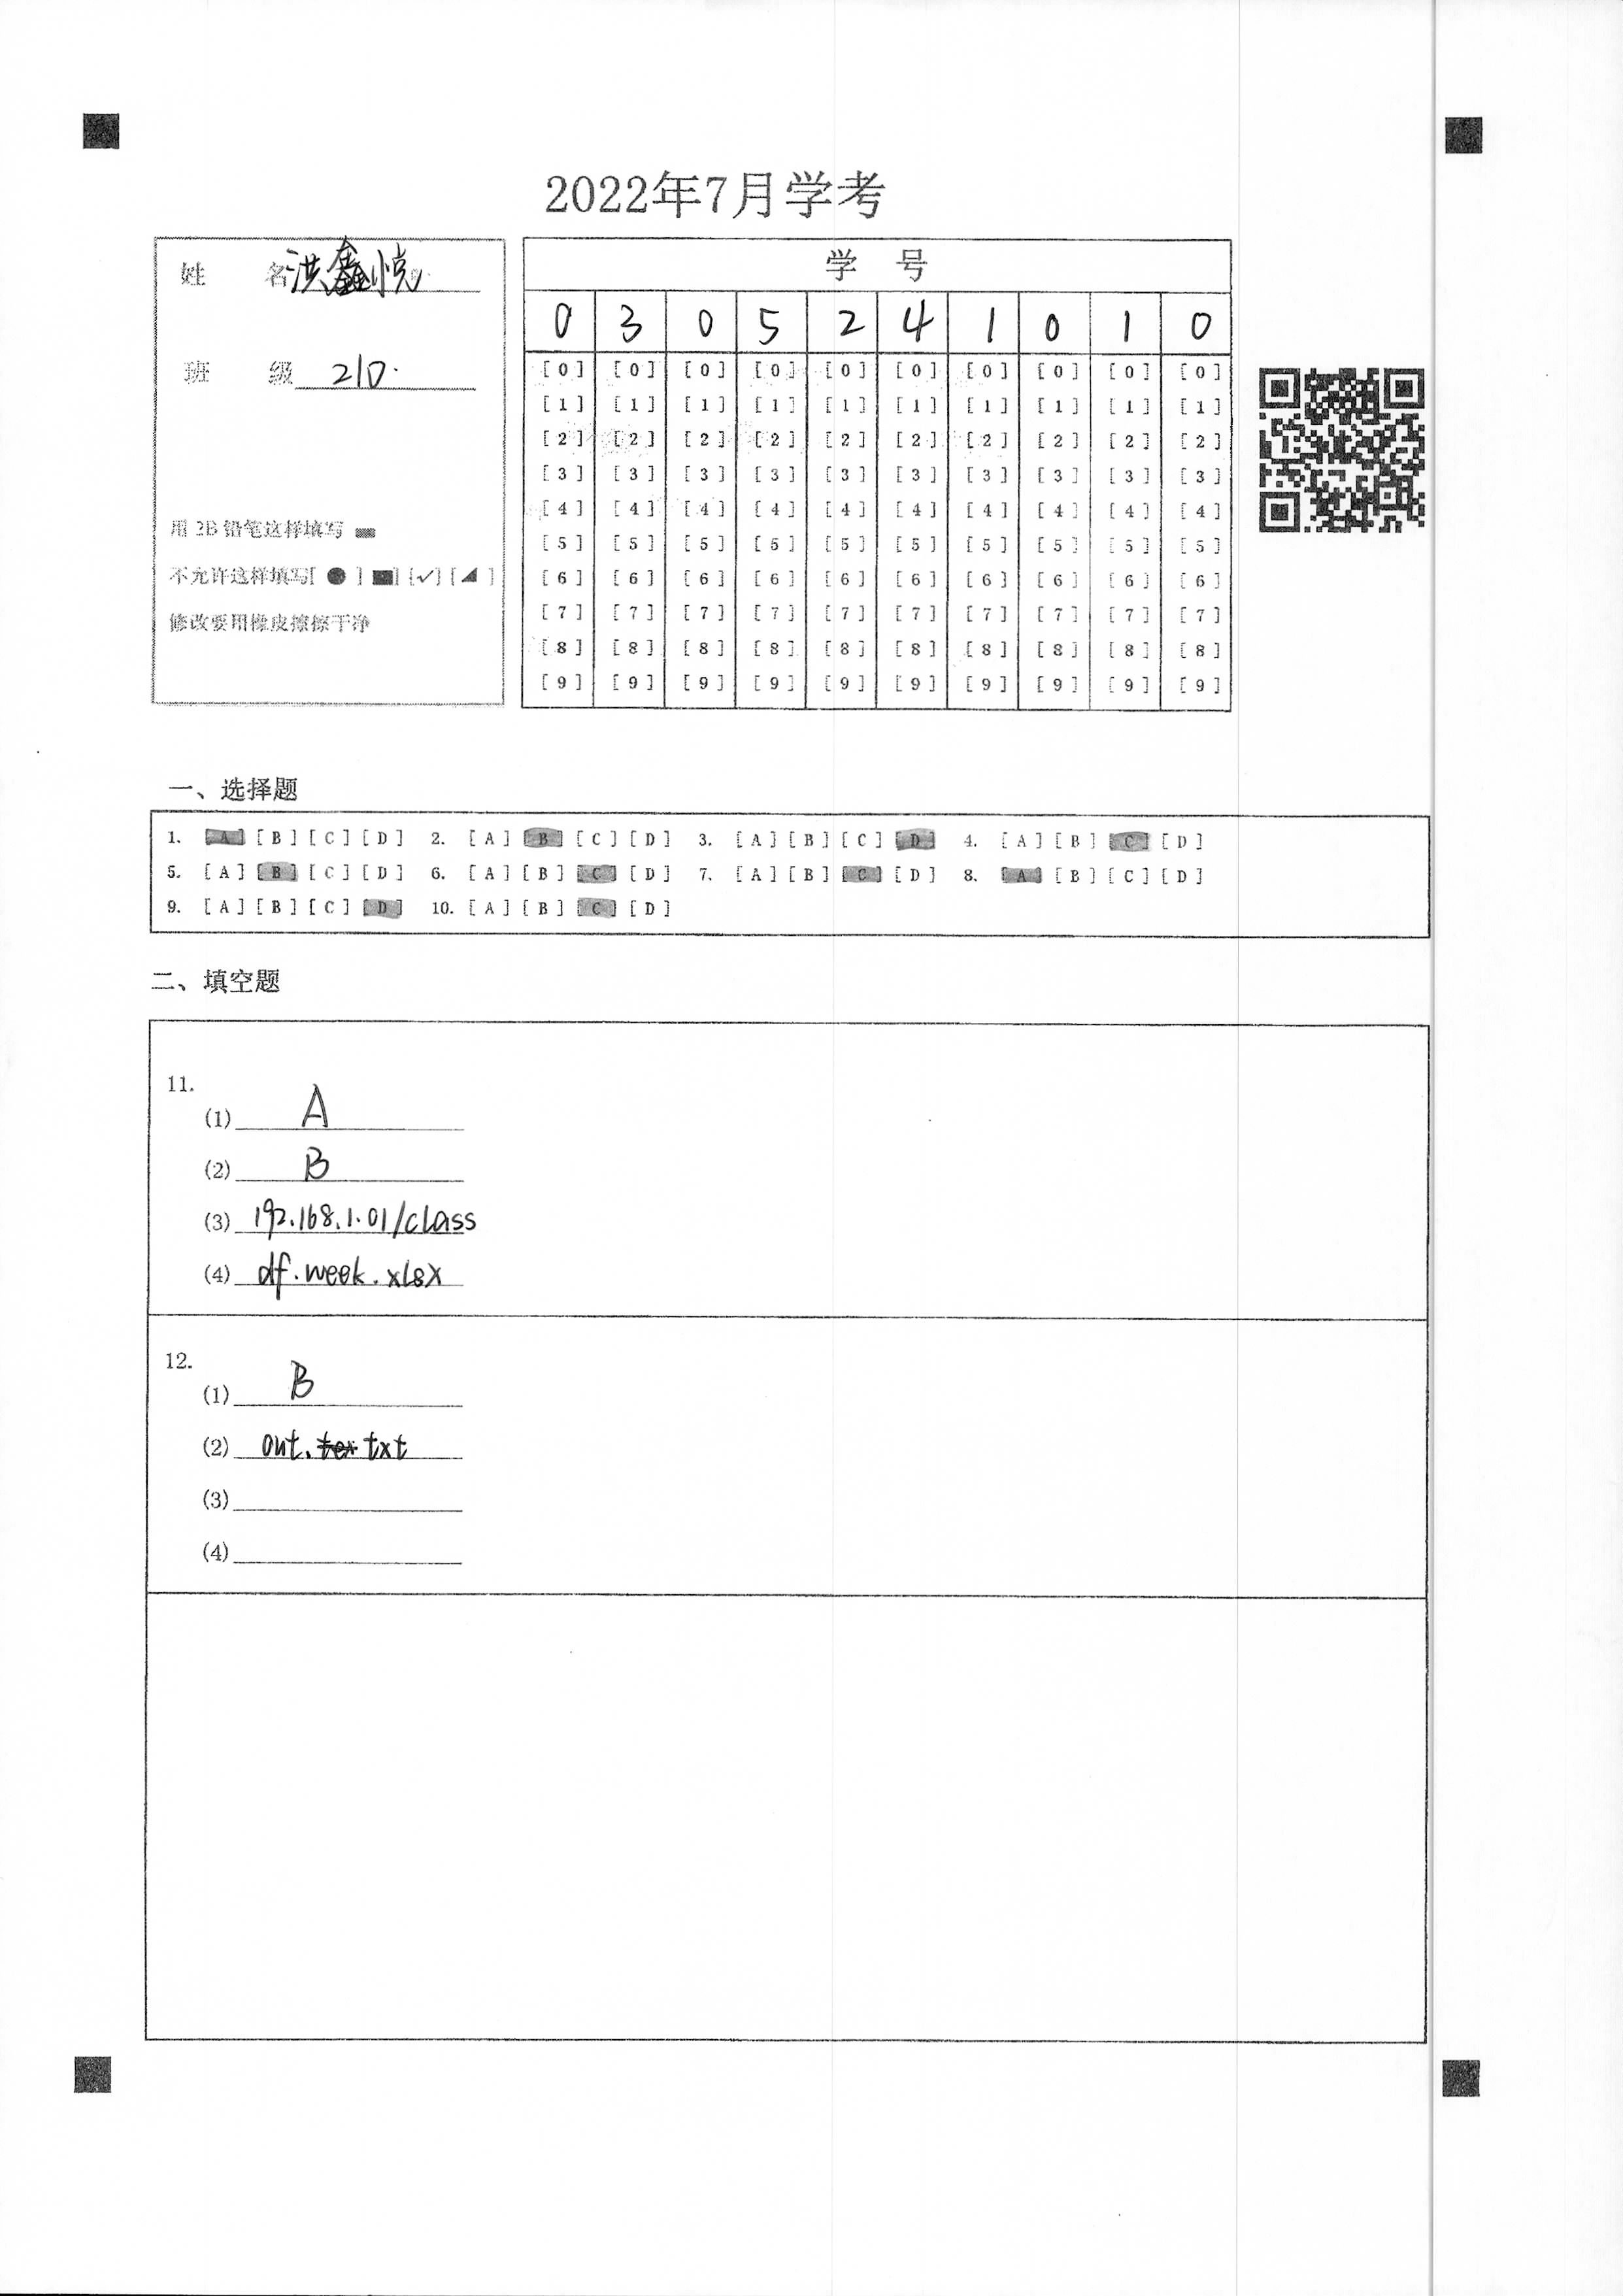 2022年7月学考
姓 名 洪鑫悦
班 级 210.
用 2B 铅笔这样填写
不允许这样填写[ ● ] [■] [✓] [◢ ]
修改要用橡皮擦擦干净
学 号
0 3 0 5 2 4 1 0 1 0
[0] [0] [0] [0] [0] [0] [0] [0] [0] [0]
[1] [1] [1] [1] [1] [1] [1] [1] [1] [1]
[2] [2] [2] [2] [2] [2] [2] [2] [2] [2]
[3] [3] [3] [3] [3] [3] [3] [3] [3] [3]
[4] [4] [4] [4] [4] [4] [4] [4] [4] [4]
[5] [5] [5] [5] [5] [5] [5] [5] [5] [5]
[6] [6] [6] [6] [6] [6] [6] [6] [6] [6]
[7] [7] [7] [7] [7] [7] [7] [7] [7] [7]
[8] [8] [8] [8] [8] [8] [8] [8] [8] [8]
[9] [9] [9] [9] [9] [9] [9] [9] [9] [9]
一、选择题
1. [A] [B] [C] [D] 2. [A] [B] [C] [D] 3. [A] [B] [C] [D] 4. [A] [B] [C] [D]
5. [A] [B] [C] [D] 6. [A] [B] [C] [D] 7. [A] [B] [C] [D] 8. [A] [B] [C] [D]
9. [A] [B] [C] [D] 10. [A] [B] [C] [D]
二、填空题
11.
(1) A
(2) B
(3) 192.168.1.01/class
(4) df.week.xlsx
12.
(1) B
(2) out.txt
(3)
(4)